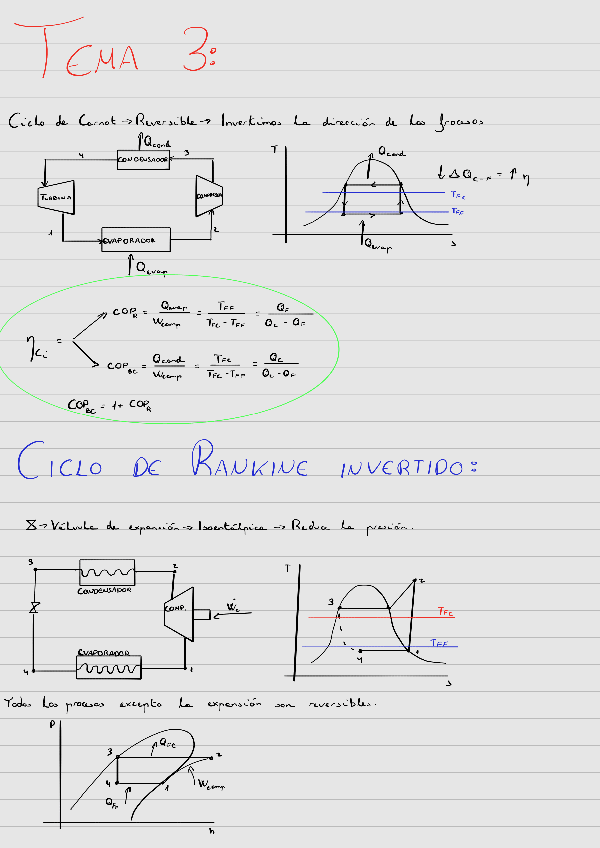 TEMA 3:
Ciclo de Carnot → Reversible → Invertimos la dirección de los procesos
Qcond
4 CONDENSADOR 3
TURBINA
COMPRESOR
1 EVAPORADOR 2
Qevap
T
Qcond
TFC
TFF
Qevap
s
ηci =
COPR = Qevap / Wcomp = TFF / TFC - TFF = QF / QC - QF
COPBC = Qcond / Wcomp = TFC / TFC - TFF = QC / QC - QF
COPBC = 1 + COPR
CICLO DE RANKINE INVERTIDO:
→ Válvula de expansión → Isoentálpica → Reduce la presión.
3 2
CONDENSADOR
COMP.
Wc
EVAPORADOR
4 1
T
2
3
TFC
TFF
4 1
s
Todos los procesos excepto la expansión son reversibles.
P
QFC
3 2
4 1 Wcomp
QFF
h